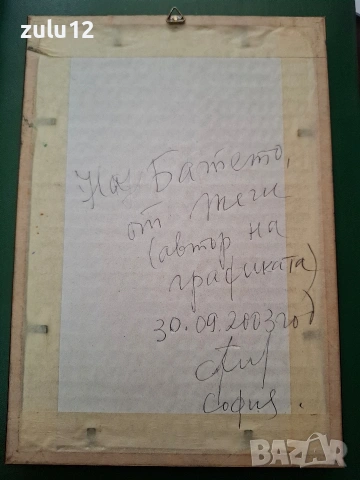 zulu12
На Батето,
от Жеги
(автор на
графиката)
30.09.2003 год
София.
BAZAR